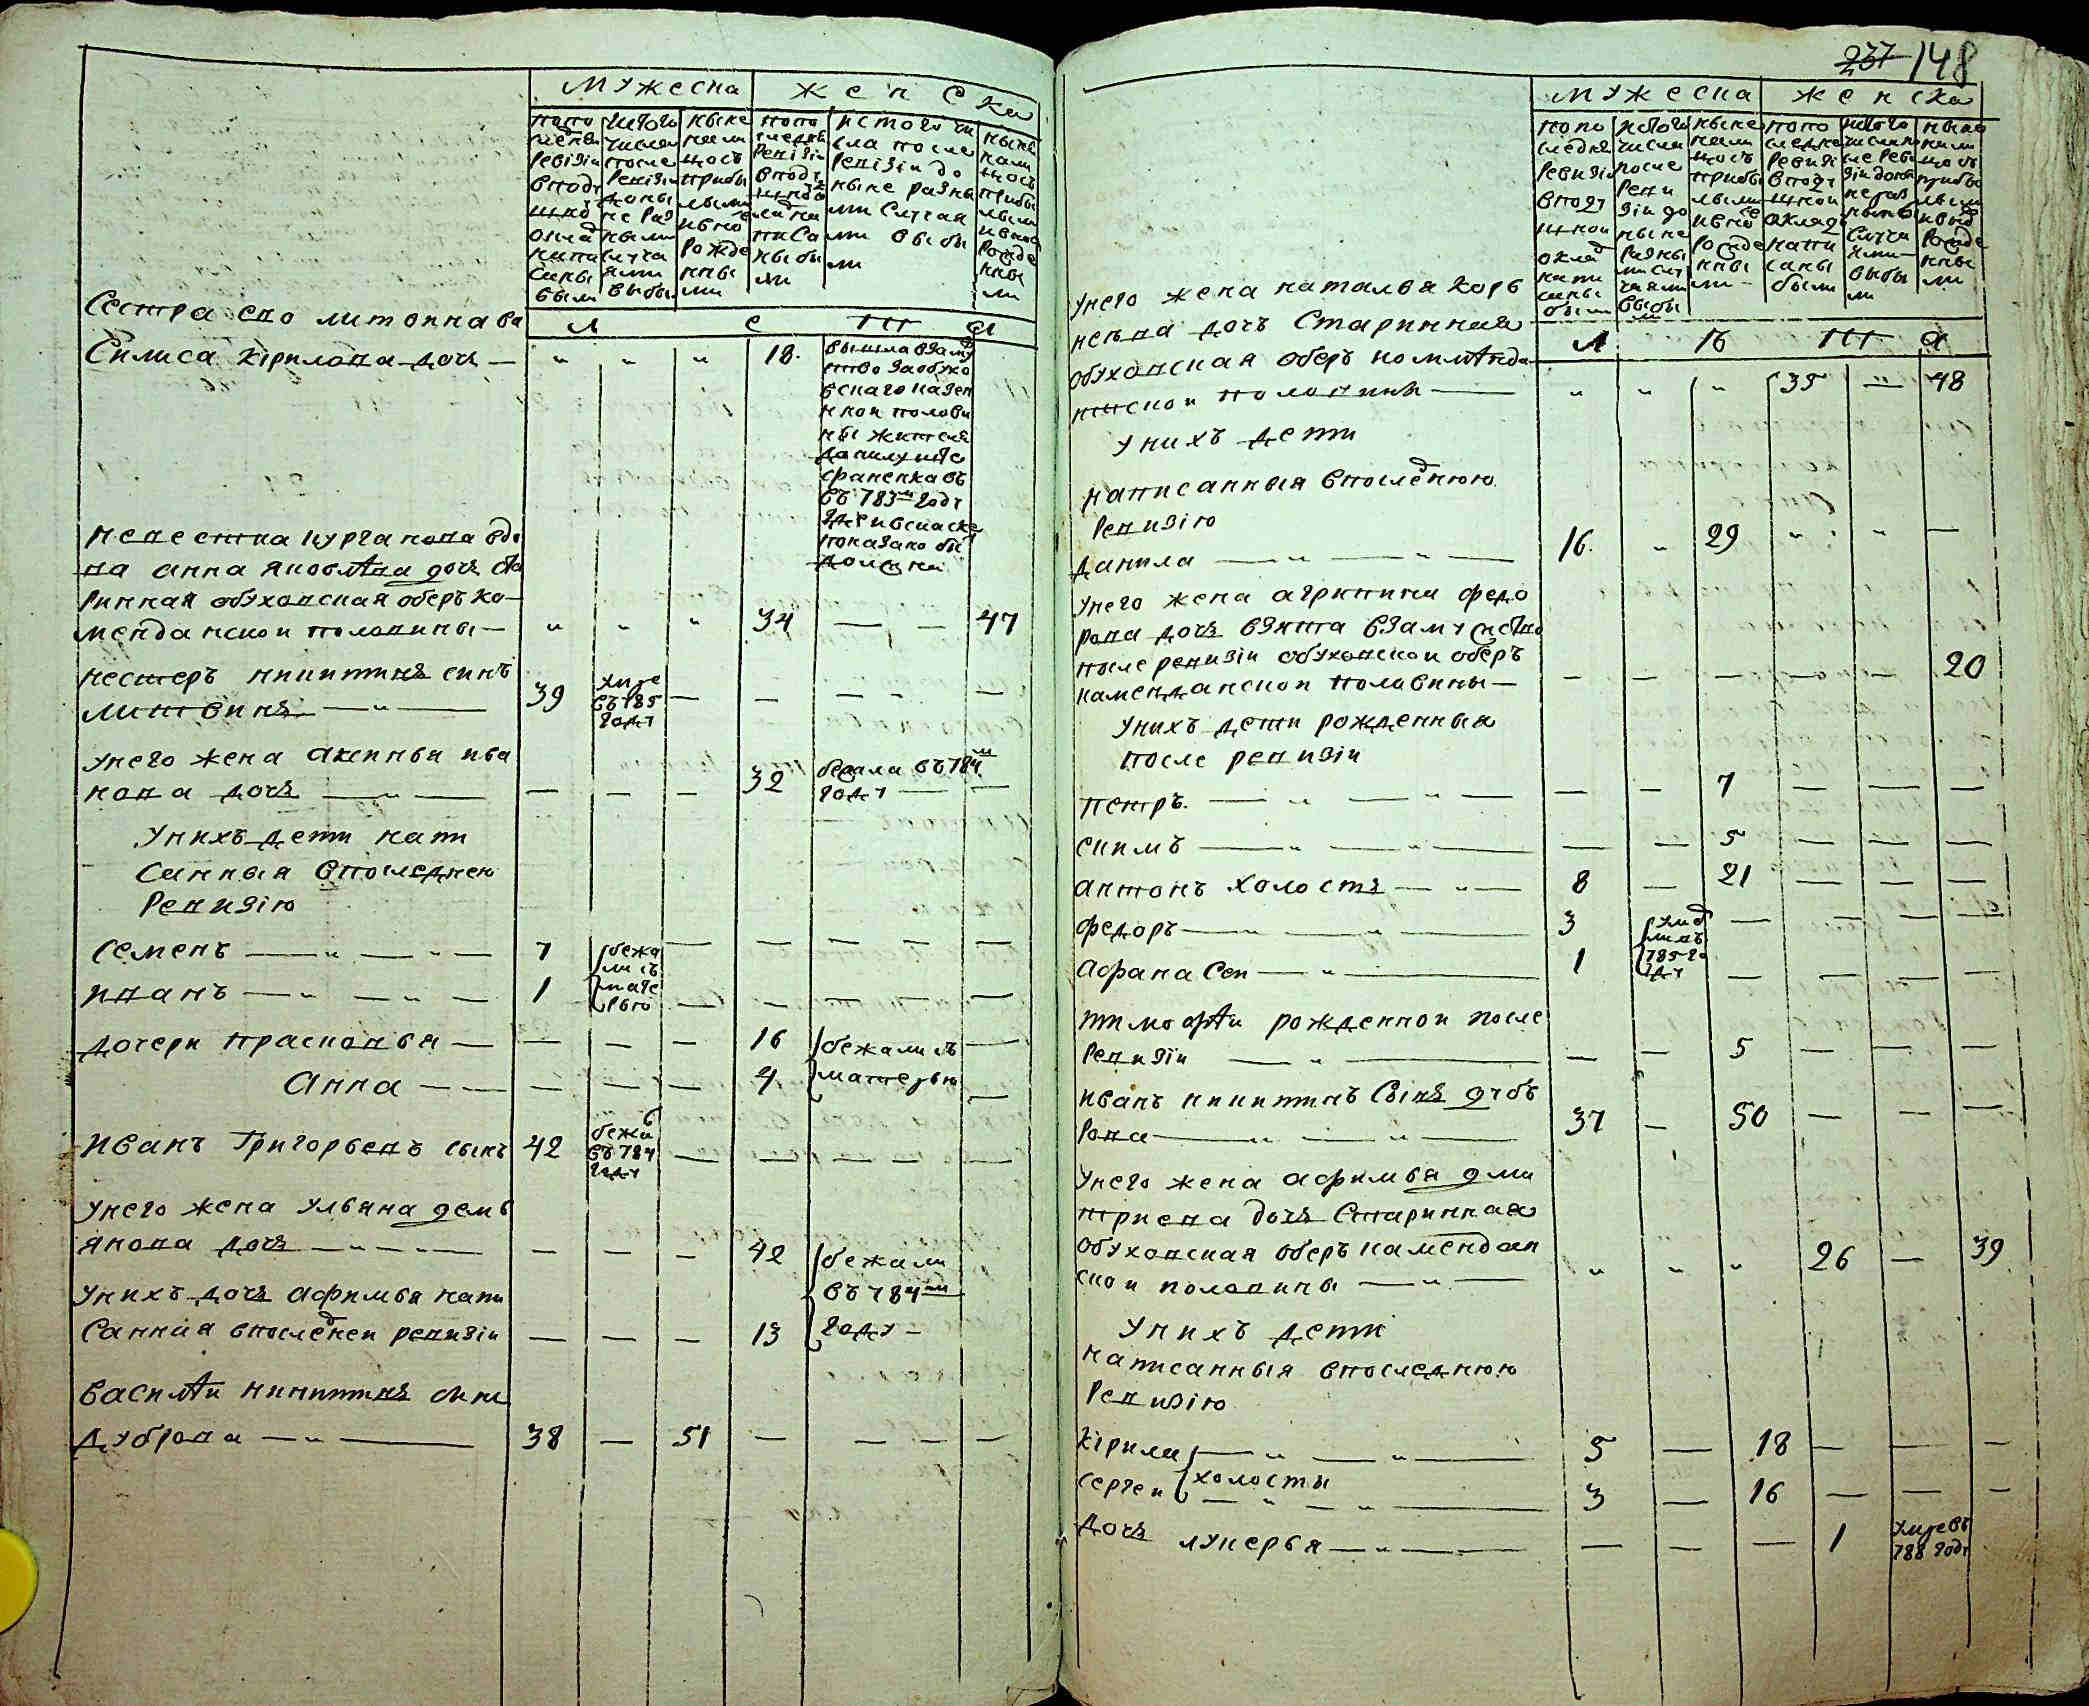 мужеска
женска
попо
следней
ревизіи
вподу
шной
оклад
напи
саны
были
истого
числа
после
ревизіи
доны
не раз
ными
случа
ями
выбы
ныне
нали
цось
прибы
лыми
ивно
рожде
нны
ми
попо
следне
ревизіи
вподу
шной
окла
писа
ны бы
ли
истого чи
сла после
ревизіи до
ныне разны
ми случая
ми выбы
ли
ныне
нали
цось
прибы
лыми
ивно
рожде
нны
ми
л е т а
Сестра ево литоннава
Силиса кірилова дочь — " " " 18. вышла взаму
ство заобухо
вскаго казен
ной полови
ны жителя
данилу
въ 783м году
показано бы
должна
невестка курганова вдо
ва анна яковлѣва дочь ста
ринная обуховская оберъ ко
менданской половины — " " " 34 — — 47
нестеръ никитинъ синъ
литвинъ — " — 39 умре
въ 785
году — — — —
унего жена аксинья ива
нова дочь — " — — — — 32 бежала въ 784м
году — —
Унихъ дети напи
санныя впоследнею
ревизію
семенъ — " — " — 7 бежа
ли съ
мате
рью — — — —
иванъ — " — " — 1 — — — —
дочери прасковья — — — — 16 бежали съ
матерью —
анна — — — — — 4 —
иванъ Григорьевъ сынъ 42 бежа
въ 784
году — — — —
унего жена ульяна демь
янова дочь — " — " — — — — 42 бежали
въ 784м
году —
Унихъ дочь афимья напи
санная впоследней ревизіи — — — 13
василѣй никитинъ синъ
дуброва — " — 38 — 51 — — —
237 148
мужеска
женска
попо
следне
ревизіи
вподу
шной
оклад
напи
саны
были
истого
числа
после
реви
зіи до
ныне
разны
ми слу
чаями
выбы
ныне
нали
цось
прибы
лыми
ивно
рожде
нны
ми
попо
следне
ревизі
вподу
шной
окладъ
напи
саны
были
истого
числа по
сле реви
зіи доны
не раз
ными
случа
ями
выбы
ли
ныне
нали
цось
прибы
лыми
ивно
рожде
нны
ми
л ѣ т а
унего жена наталья корь
нева дочь старинная
обуховская оберъ коммѣнда
нской половины — " " " 35 — 48
унихъ дети
написанныя впоследнюю
ревизію
данила — " — " — 16. " 29 " " —
унего жена агрипина федо
рова дочь взята взамужство
после ревизіи обуховской оберъ
каменданской половины — — — — — — 20
унихъ дети рожденныя
после ревизіи
петръ. — " — " — — — 7 — — —
екимъ — " — " — — — 5 — — —
антонъ холостъ — " — 8 — 21 — — —
федоръ — " — " — 3 умер
ли въ
785 го
ду — — — —
афанасеи — " — 1 — — — —
тимофѣй рожденной после
ревизіи — " — — — 5 — — —
иванъ никитинъ сынъ дуб
рова — " — " — 37 — 50 — — —
унего жена афимья дми
триева дочь старинная
обуховская оберъ камендан
ской половины — " — " " " 26 — 39
унихъ дети
написанныя впоследнюю
ревизію
кірила — " — " — 5 — 18 — — —
холосты
сергеи — " — " — 3 — 16 — — —
дочь лукерья — " — — — — 1 умре въ
788 году